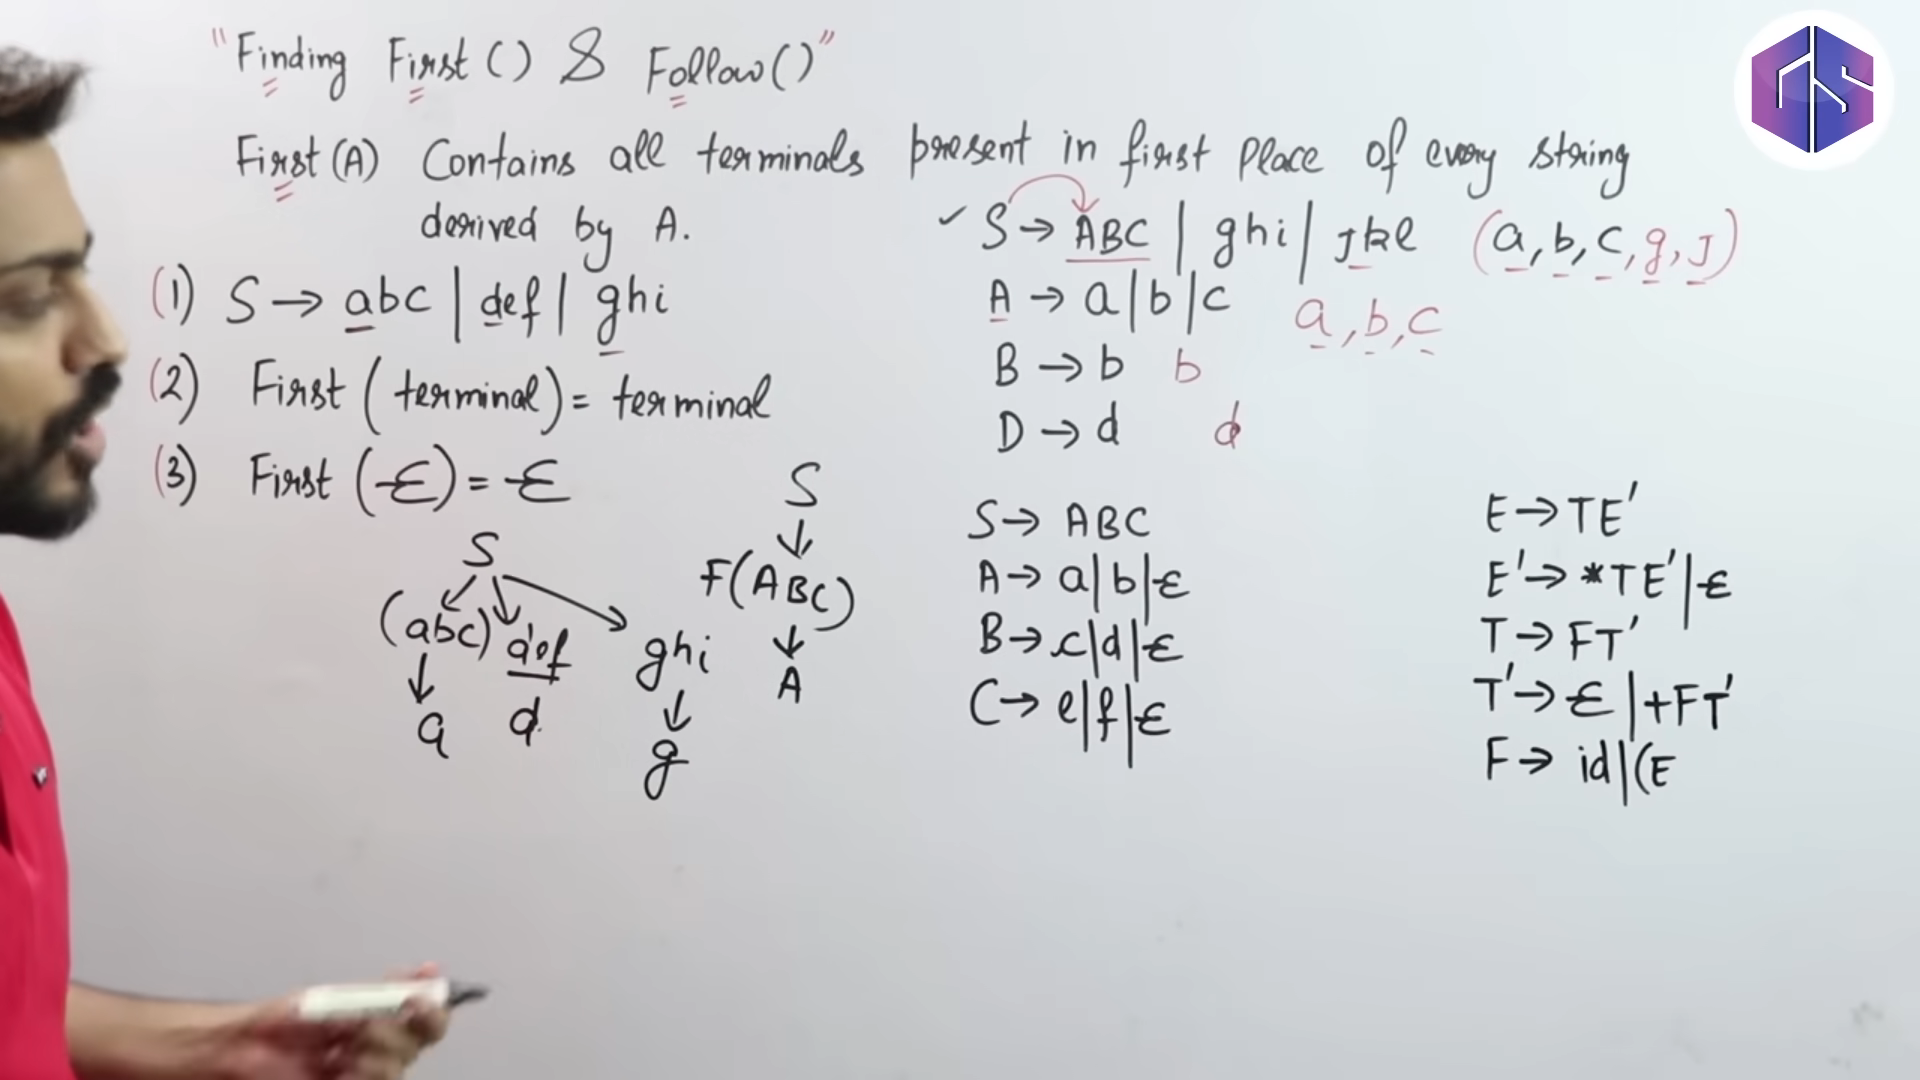 "Finding First() & Follow()"
First(A) Contains all terminals present in first place of every string
derived by A.
(1) S → abc | def | ghi
(2) First (terminal) = terminal
(3) First (Є) = Є
S
(abc) def ghi
a d g
S
F(ABC)
A
S → ABC | ghi | Jkl (a, b, c, g, J)
A → a|b|c a, b, c
B → b b
D → d d
S → ABC
A → a|b|Є
B → c|d|Є
C → e|f|Є
E → TE'
E' → *TE'|Є
T → FT'
T' → Є|+FT'
F → id|(E